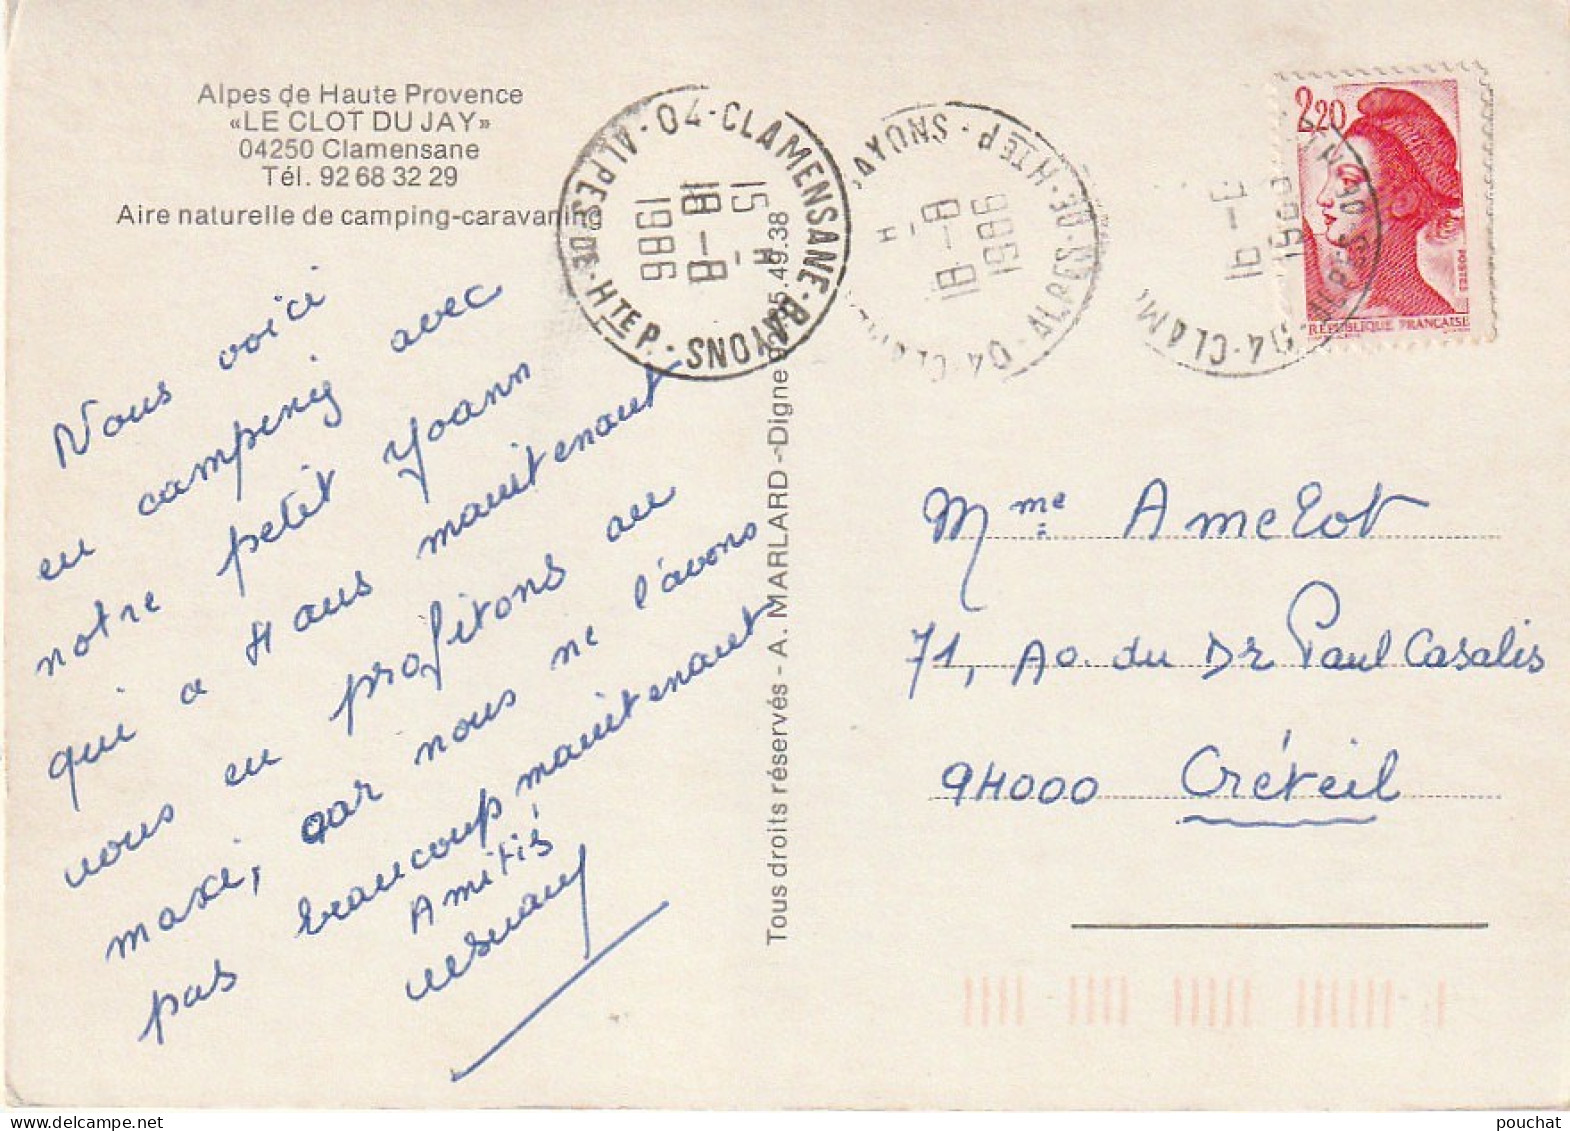 Alpes de Haute Provence
«LE CLOT DU JAY»
04250 Clamensane
Tél. 92 68 32 29
Aire naturelle de camping-caravaning
Nous voici
en camping avec
notre petit Yoann
qui a 4 ans maintenant
nous en profitons au
maxi, car nous ne l'avons
pas beaucoup maintenant
Amitiés
Tous droits réservés - A. MARLARD - Digne 92.35.49.38
04-CLAMENSANE-BAYONS
ALPES-DE-HTE P.
15-H
18-8
1986
04-CLAM
ALPES-DE-HTE P-
BAYONS
H
18-8
1986
04-CLAM
2,20
POSTES
RÉPUBLIQUE FRANÇAISE
Mme Amelot
71, Av. du Dr Paul Casalis
94000 Créteil
pouchat